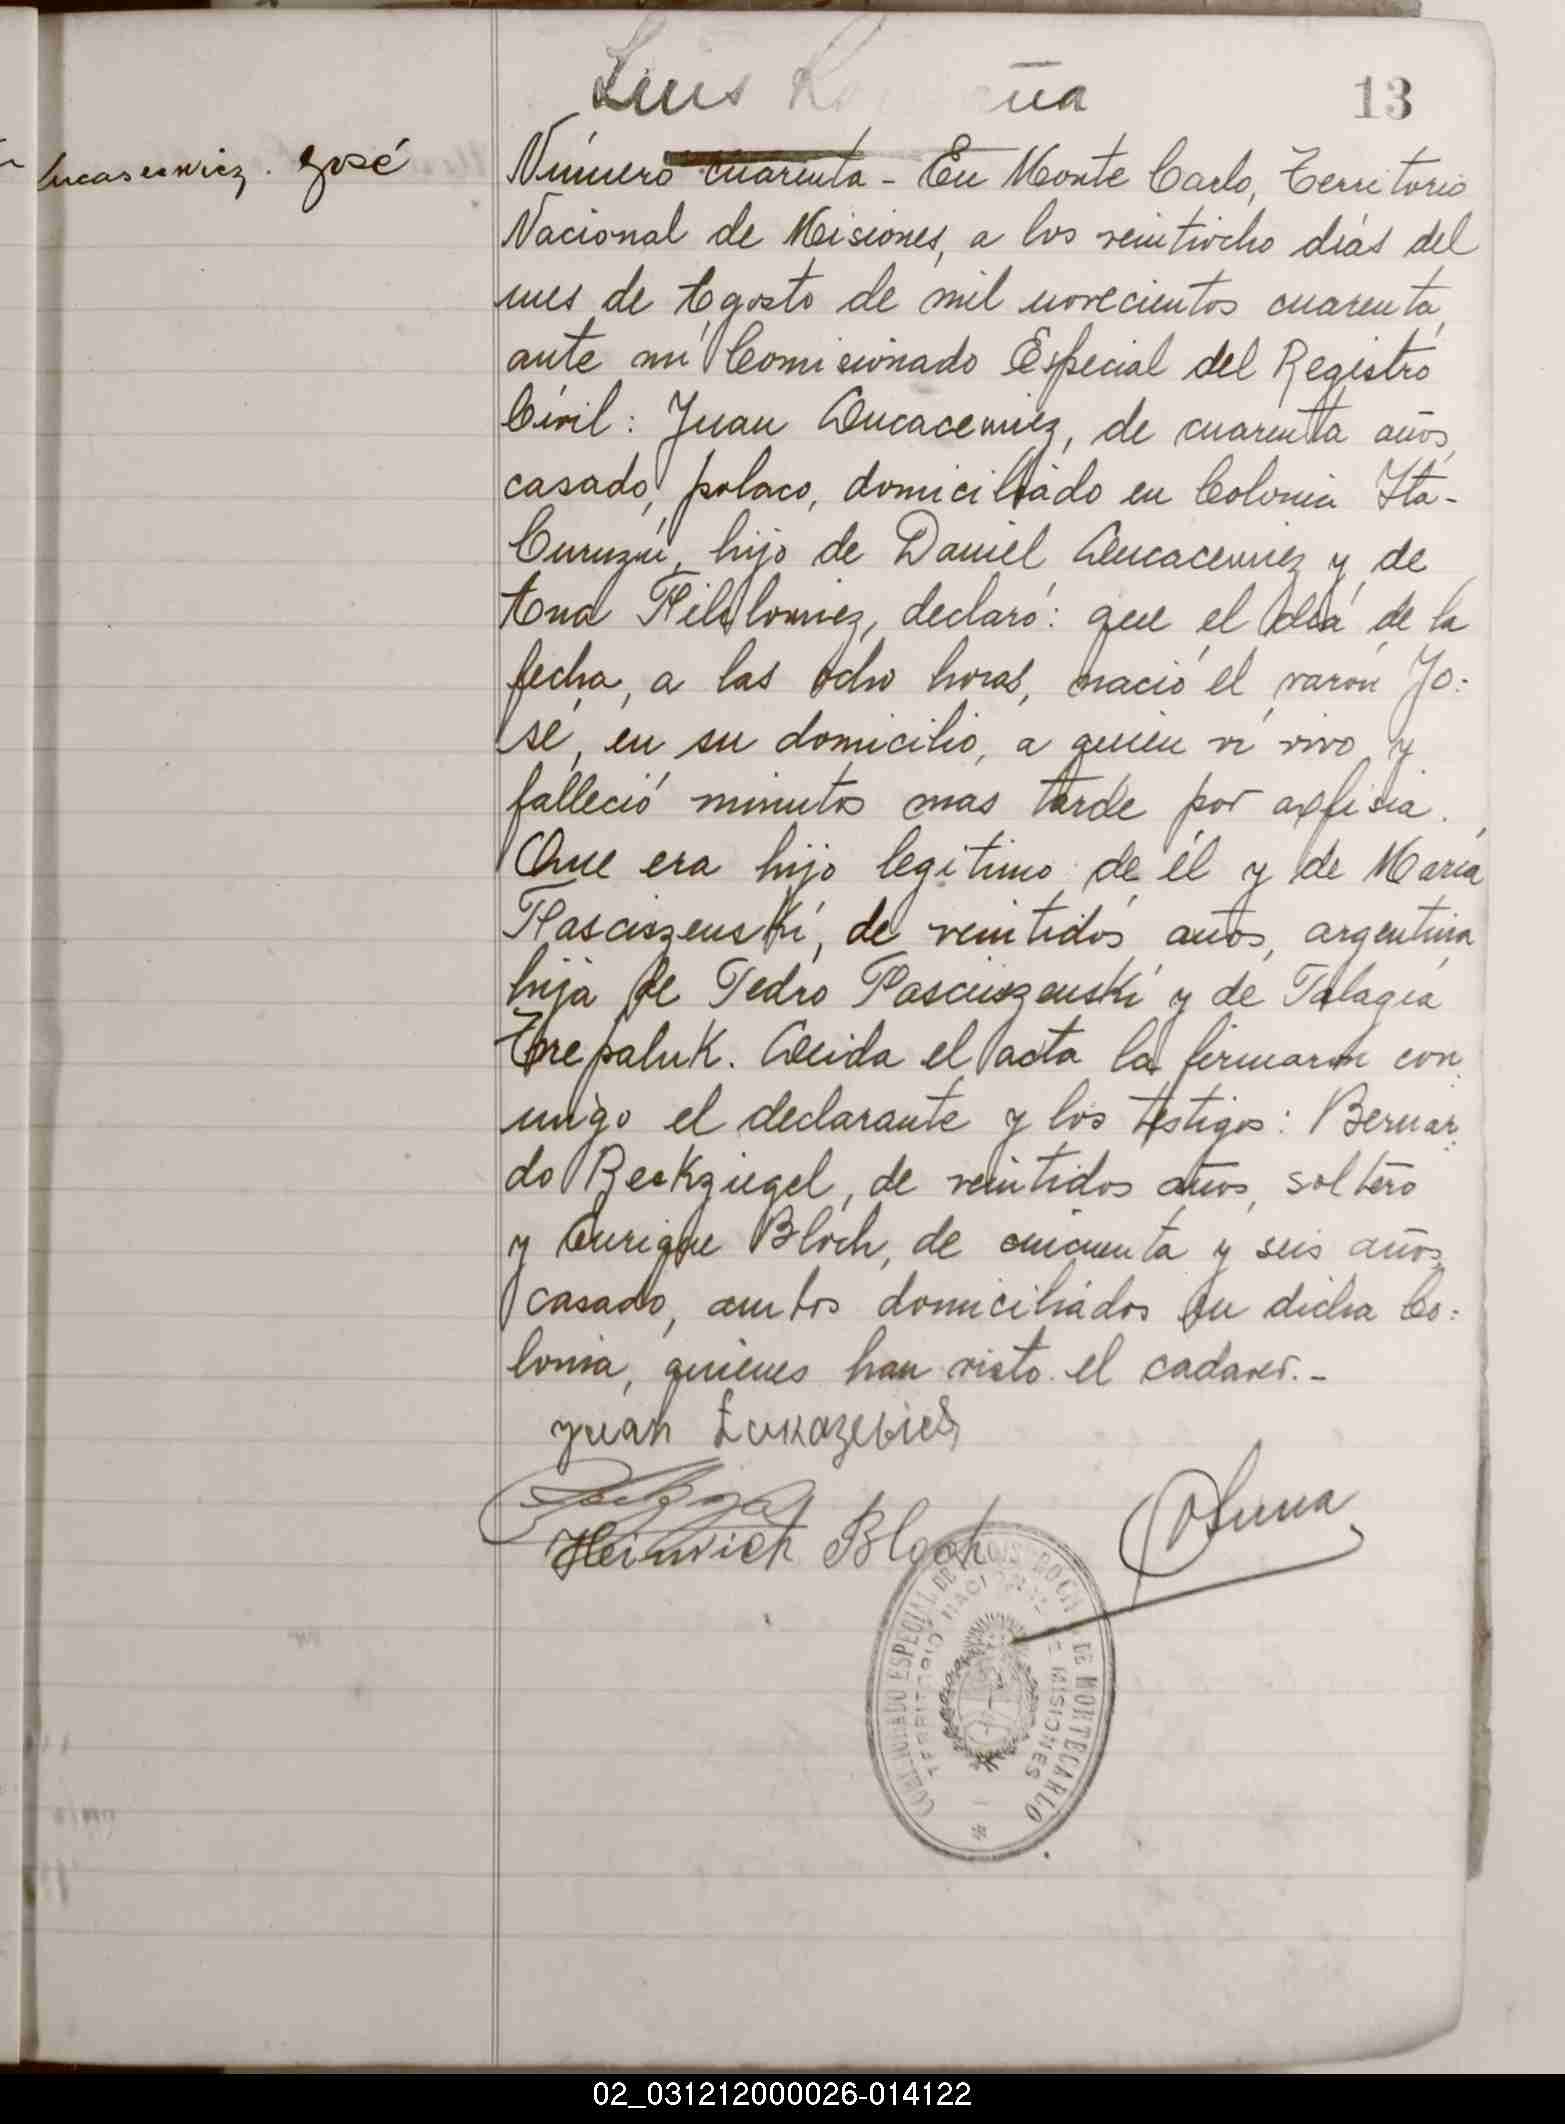 Luis
13
Lucasewicz. José
Número cuarenta - En Monte Carlo, Territorio
Nacional de Misiones, a los veintiocho días del
mes de Agosto de mil novecientos cuarenta,
ante mí Comisionado Especial del Registro
Civil: Juan Lucacewiez, de cuarenta años,
casado, polaco, domiciliado en Colonia Ita-
Curuzú, hijo de Daniel Lucacewiez y de
Ana, declaró: que el día de la
fecha, a las ocho horas, nació el varón Jo=
sé, en su domicilio, a quien ví vivo y
falleció minutos mas tarde por asfisia.
Que era hijo legítimo de él y de María
Plasciszenski, de veintidós años, argentina,
hija de Pedro Plasciszenski y de Palagia
Trepaluk. Leida el acta la firmaron con=
migo el declarante y los testigos: Bernar=
do Beckziegel, de veintidos años, soltero
y Enrique Bloch, de cincuenta y seis años,
casado, ambos domiciliados en dicha Co=
lonia, quienes han visto el cadaver.-
Juan Łukazevics
Heinrich Bloch
COMISIONADO ESPECIAL DE REGISTRO CIVIL DE MONTECARLO
TERRITORIO NACIONAL DE MISIONES
02_031212000026-014122